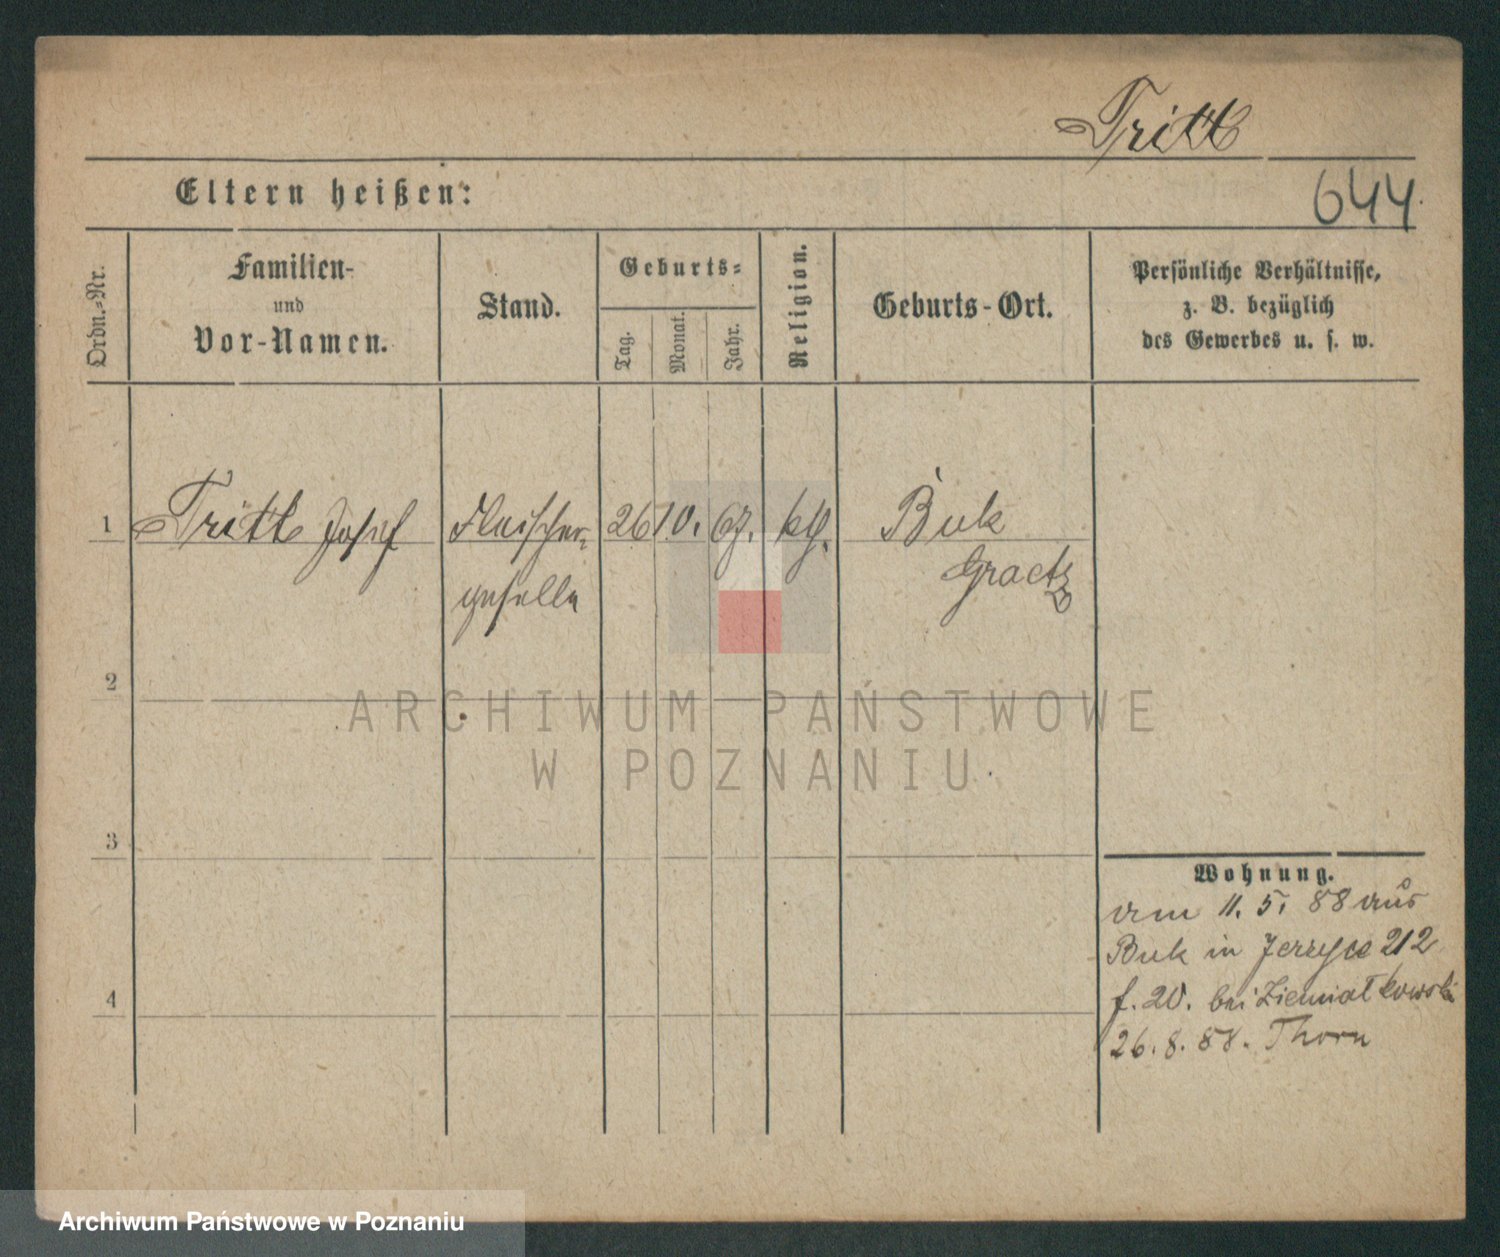 Tritt
644.
Eltern heißen:
Ordn.-Nr.
Familien-
und
Vor-Namen.
Stand.
Geburts-
Tag.
Monat.
Jahr.
Religion.
Geburts-Ort.
Persönliche Verhältnisse,
z. B. bezüglich
des Gewerbes u. s. w.
1 Tritt Josef Fleischer- 26 10. 67. kth. Buk
geselle Graetz
2
3
4
Wohnung.
am 11. 5. 88 aus
Buk in Jerzyce 212
f. 20. bei Ziemiatkowski
26. 8. 88. Thorn
ARCHIWUM PAŃSTWOWE
W POZNANIU
Archiwum Państwowe w Poznaniu